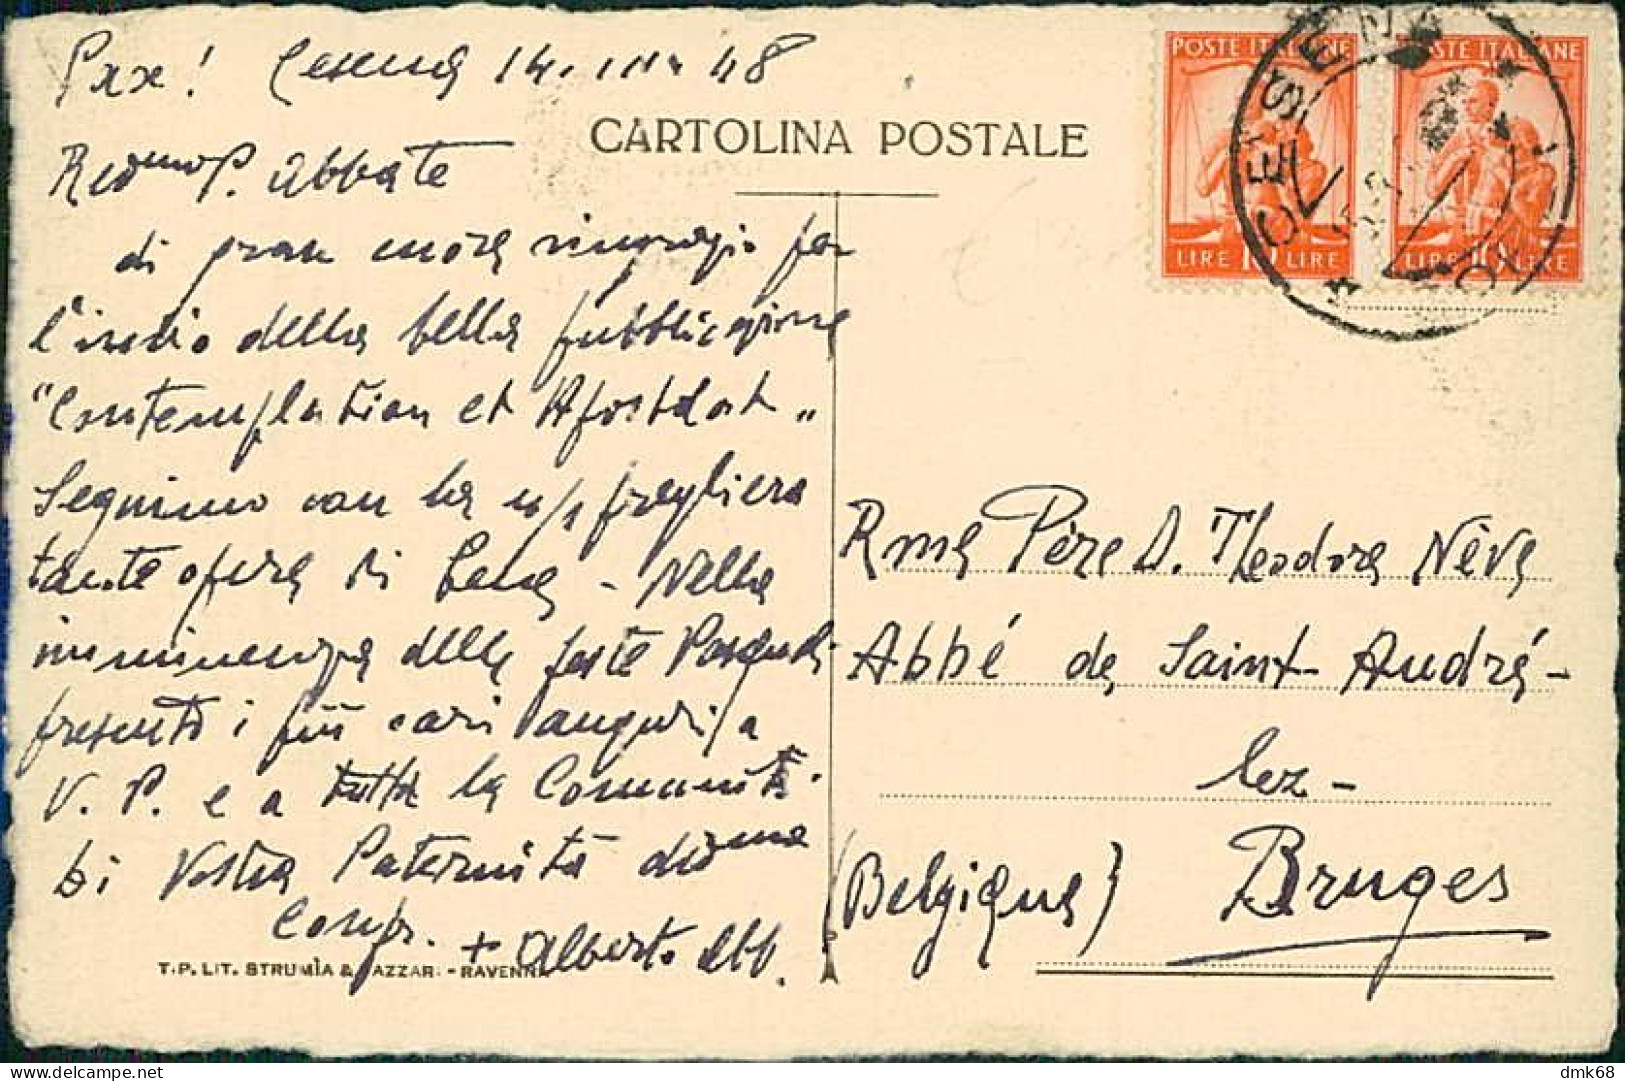 Pax! Cesena 14. III. 48
Revmo P. Abbate
di gran cuore ringrazio per
l'invio della bella pubblicazione
"Contemplation et Apostolat"
Seguiamo con la n/s preghiera
tante opere di bene - Nella
imminenza delle feste Pasquali
presento i più cari auguri a
V. P. e a tutta la Comunità.
Di Vostra Paternità devma
Confr. + Alberto Abb.
T.P. LIT. STRUMÌA & TAZZARI - RAVENNA
CARTOLINA POSTALE
POSTE ITALIANE
LIRE 10 LIRE
POSTE ITALIANE
LIRE 10 LIRE
CESENA
Rme Père D. Theodore Nève
Abbé de Saint-André-
lez-
Bruges
(Belgique)
dmk68